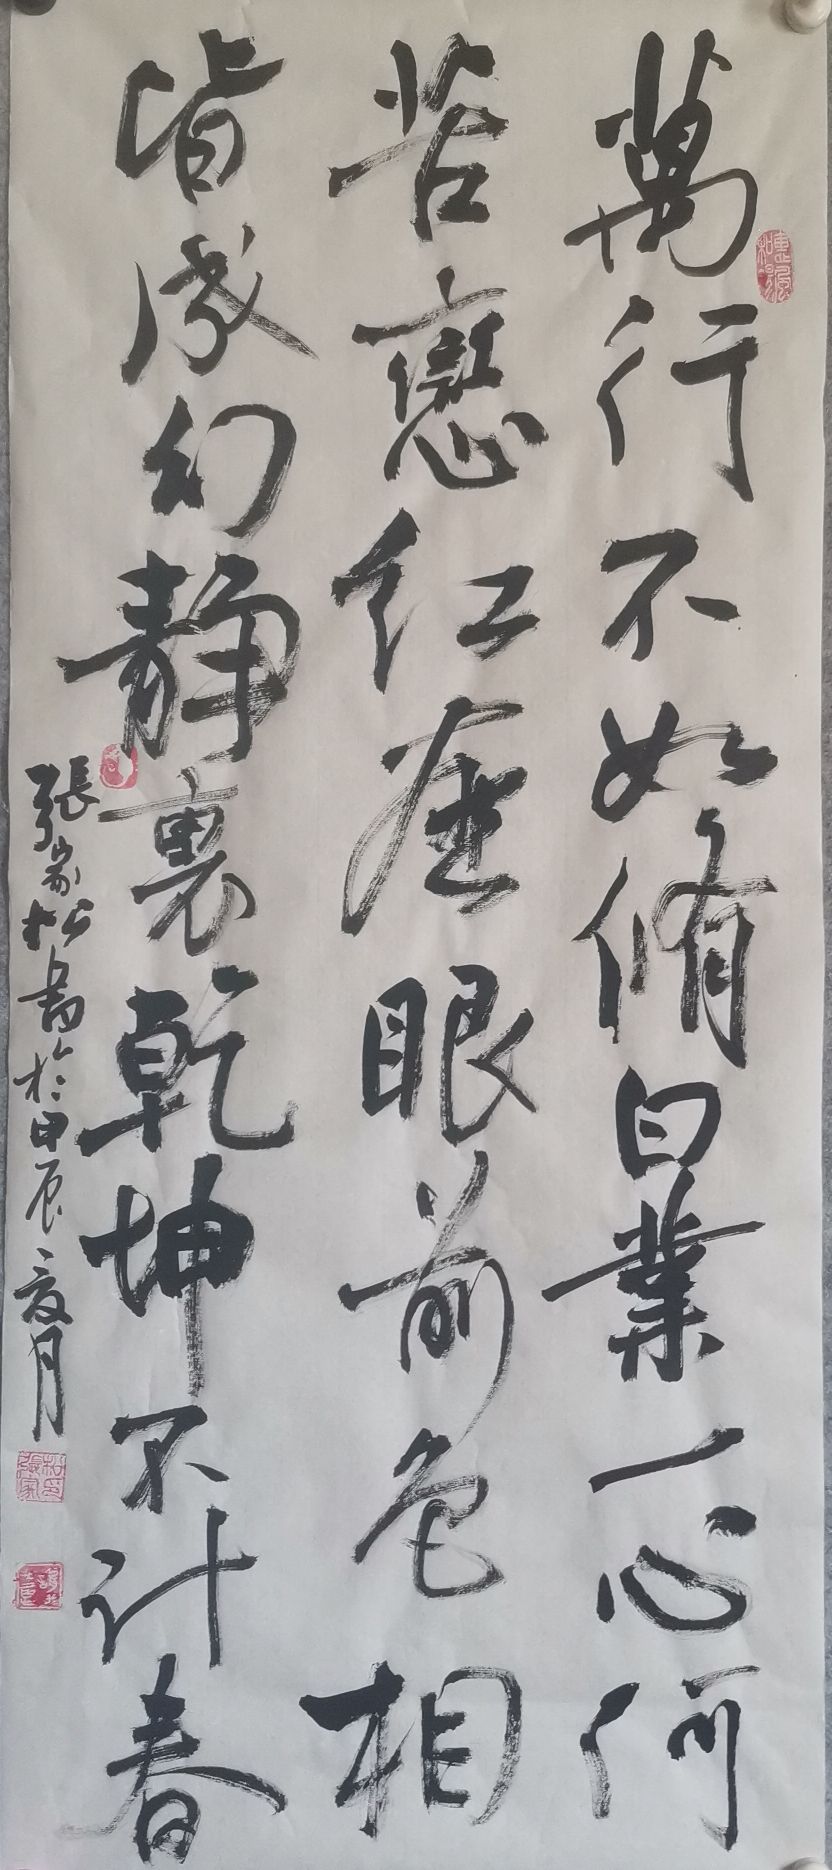 萬行不如脩白業一心何
苦戀红塵眼前色相
皆成幻静裏乾坤不计春
張家松書於甲辰夏月